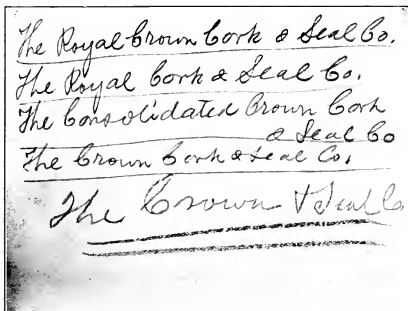 The Royal Crown Cork & Seal Co.
The Royal Cork & Seal Co.
The Consolidated Crown Cork
& Seal Co
The Crown Cork & Seal Co.
The Crown & Seal Co